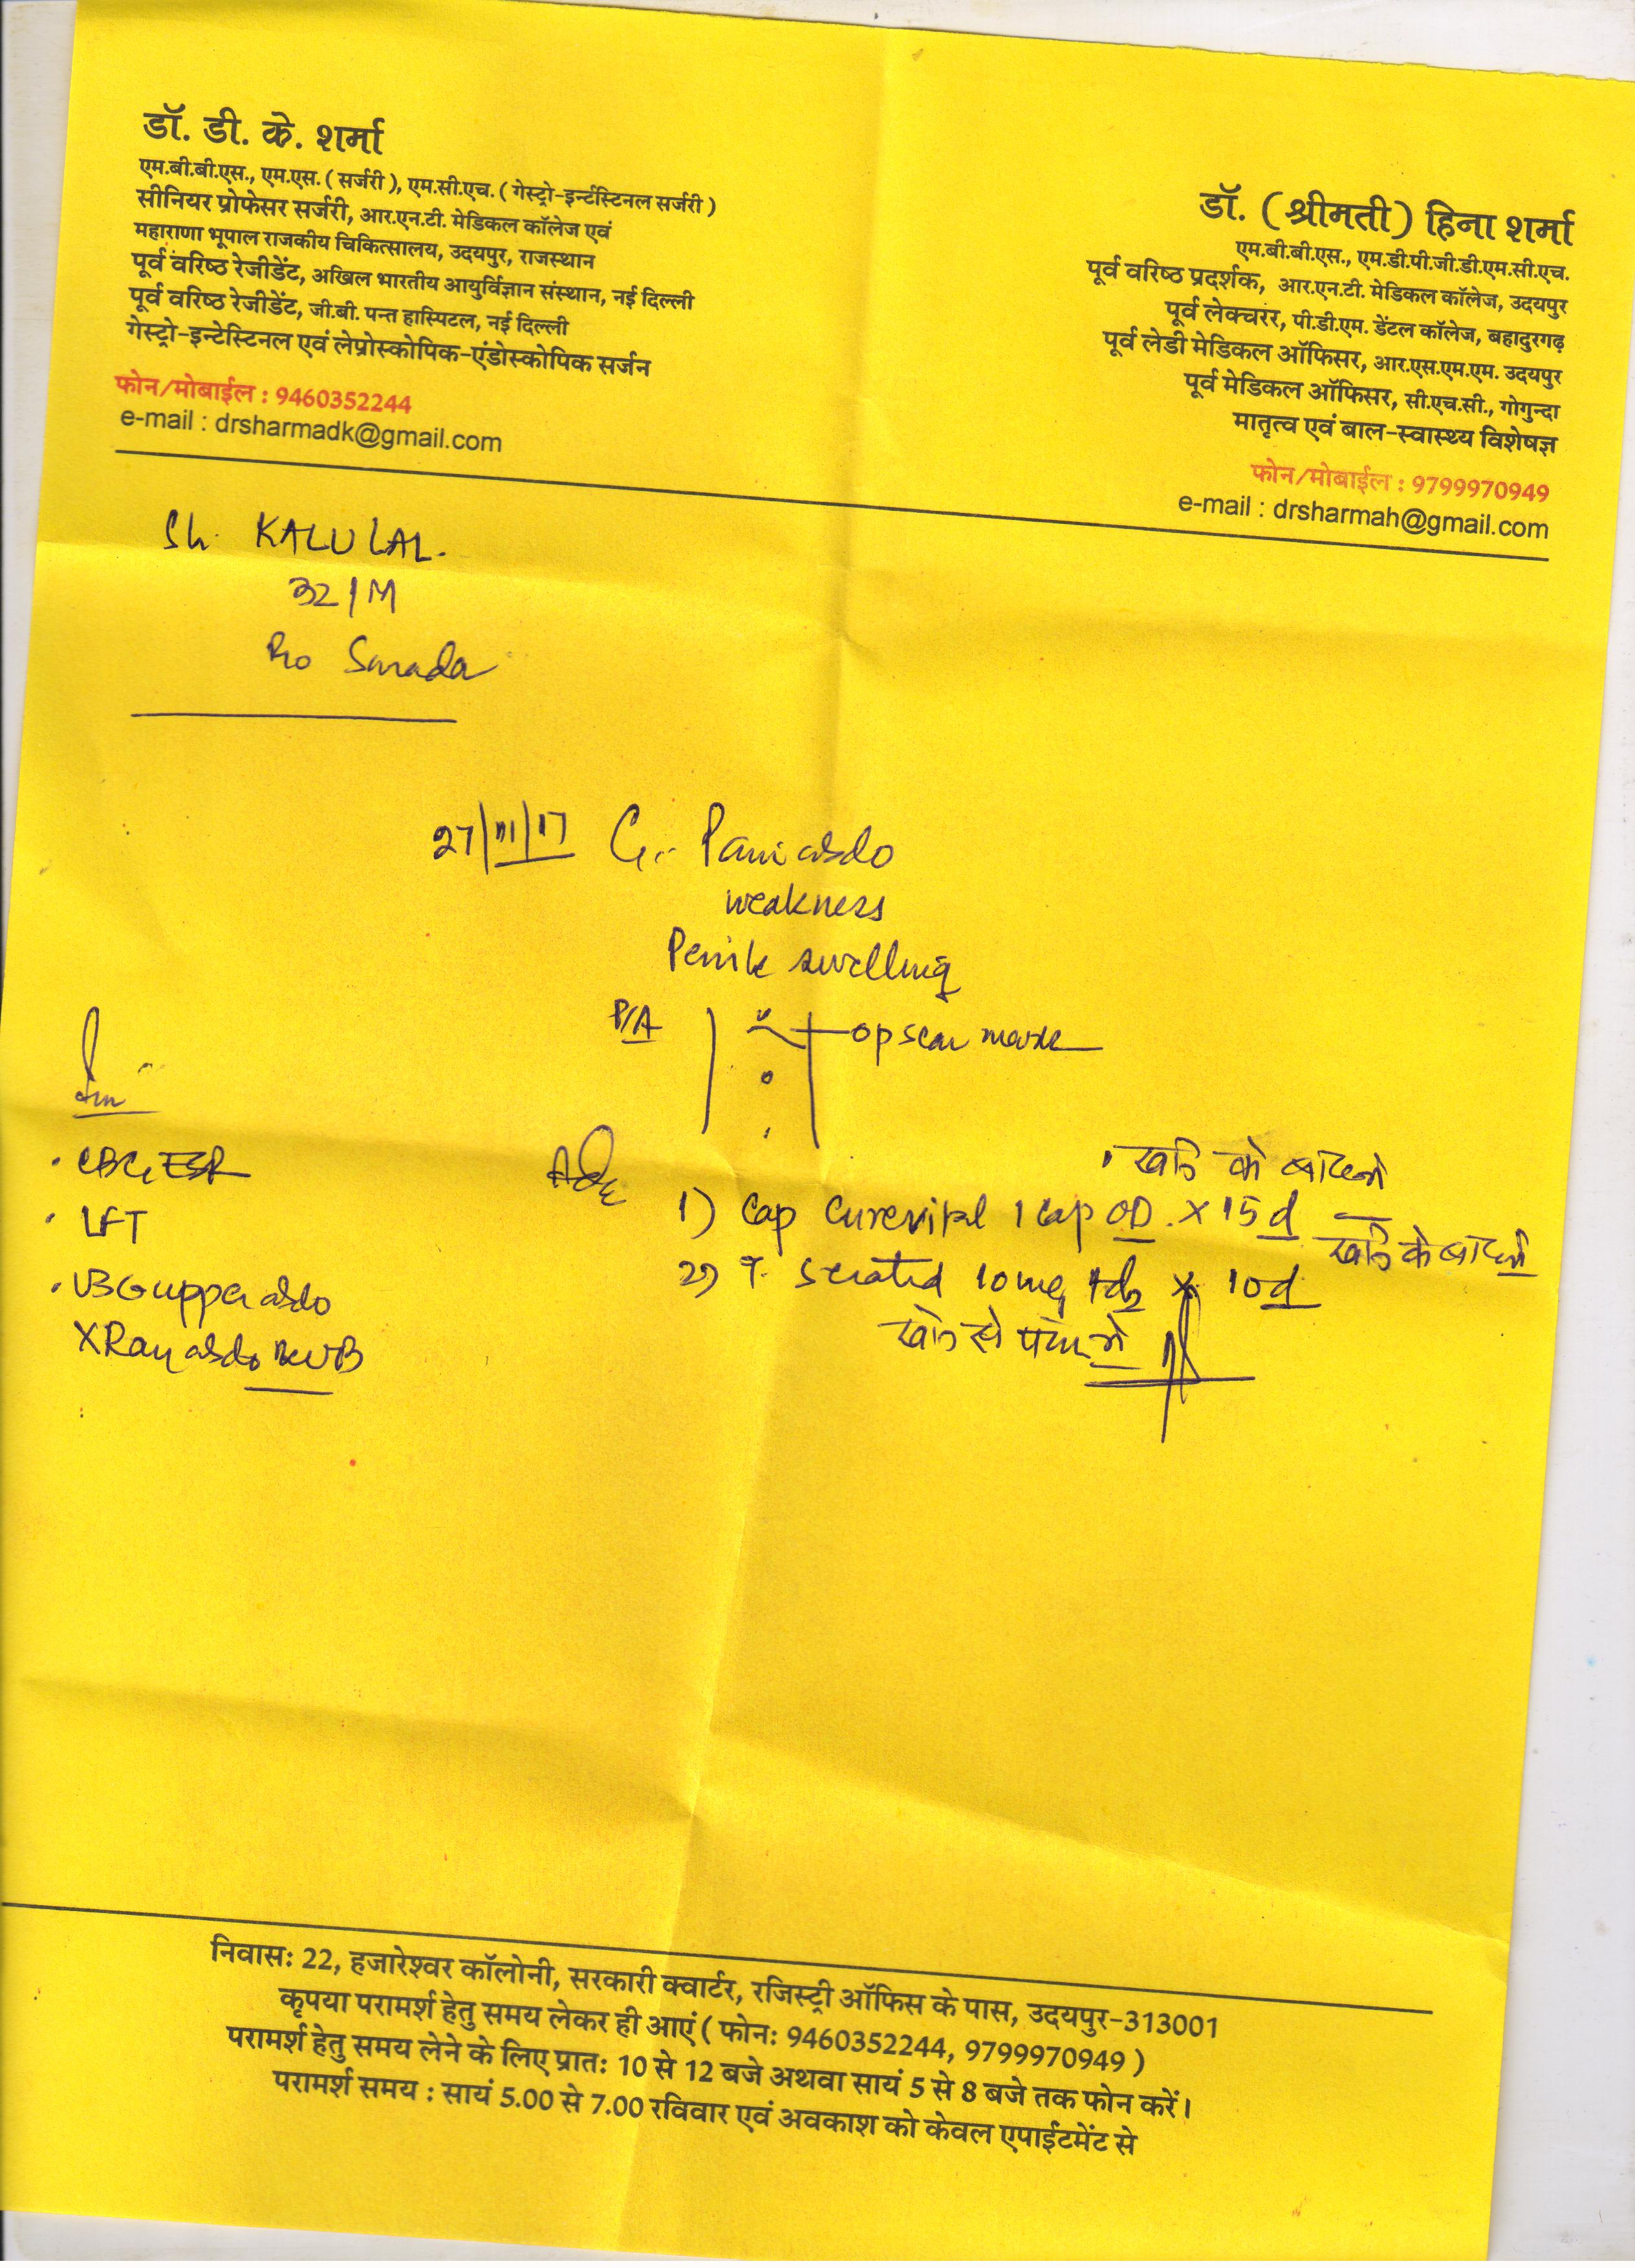 डॉ. डी. के. शर्मा
एम.बी.बी.एस., एम.एस. ( सर्जरी ), एम.सी.एच. ( गेस्ट्रो-इन्टेस्टिनल सर्जरी )
सीनियर प्रोफेसर सर्जरी, आर.एन.टी. मेडिकल कॉलेज एवं
महाराणा भूपाल राजकीय चिकित्सालय, उदयपुर, राजस्थान
पूर्व वरिष्ठ रेजीडेंट, अखिल भारतीय आयुर्विज्ञान संस्थान, नई दिल्ली
पूर्व वरिष्ठ रेजीडेंट, जी.बी. पन्त हास्पिटल, नई दिल्ली
गेस्ट्रो-इन्टेस्टिनल एवं लेप्रोस्कोपिक-एंडोस्कोपिक सर्जन
फोन/मोबाईल : 9460352244
e-mail : drsharmadk@gmail.com
डॉ. ( श्रीमती ) हिना शर्मा
एम.बी.बी.एस., एम.डी.पी.जी.डी.एम.सी.एच.
पूर्व वरिष्ठ प्रदर्शक, आर.एन.टी. मेडिकल कॉलेज, उदयपुर
पूर्व लेक्चरर, पी.डी.एम. डेंटल कॉलेज, बहादुरगढ़
पूर्व लेडी मेडिकल ऑफिसर, आर.एस.एम.एम. उदयपुर
पूर्व मेडिकल ऑफिसर, सी.एच.सी., गोगुन्दा
मातृत्व एवं बाल-स्वास्थ्य विशेषज्ञ
फोन/मोबाईल : 9799970949
e-mail : drsharmah@gmail.com
Sh. KALU LAL.
32/M
R/o Sarada
27/11/17 C/o Pain abdo
weakness
Penile swelling
P/A op scar mark
Adv
खाने के बाद में
1) Cap 1 cap OD x 15 d
खाने के बाद में
2) T. 10 mg x 10 d
CBC, ESR
LFT
USG upper abdo
X Ray abdo KUB
निवास: 22, हजारेश्वर कॉलोनी, सरकारी क्वार्टर, रजिस्ट्री ऑफिस के पास, उदयपुर-313001
कृपया परामर्श हेतु समय लेकर ही आएं ( फोन: 9460352244, 9799970949 )
परामर्श हेतु समय लेने के लिए प्रात: 10 से 12 बजे अथवा सायं 5 से 8 बजे तक फोन करें।
परामर्श समय : सायं 5.00 से 7.00 रविवार एवं अवकाश को केवल एपाईंटमेंट से